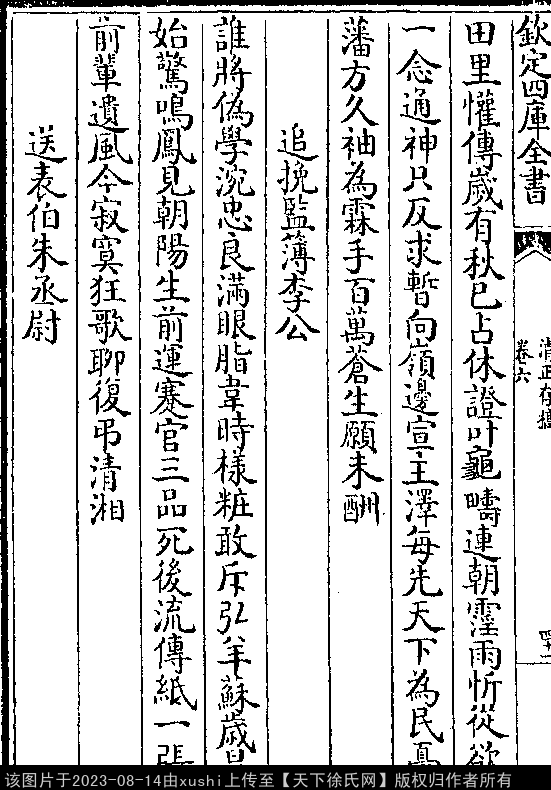 欽定四庫全書
清正存稿
卷六
田里懽傳嵗有秋已占休證叶龜疇連朝霪雨忻從欲
一念通神只反求暫向嶺邊宣主澤每先天下為民憂
藩方久袖為霖手百萬蒼生願未酬
追挽監簿李公
誰將偽學浼忠良滿眼脂韋時様粧敢斥弘羊蘇歲旱
始驚鳴鳳見朝陽生前運蹇官三品死後流傳紙一張
前輩遺風今寂寞狂歌聊復弔清湘
送表伯朱丞尉
该图片于2023-08-14由xushi上传至【天下徐氏网】版权归作者所有